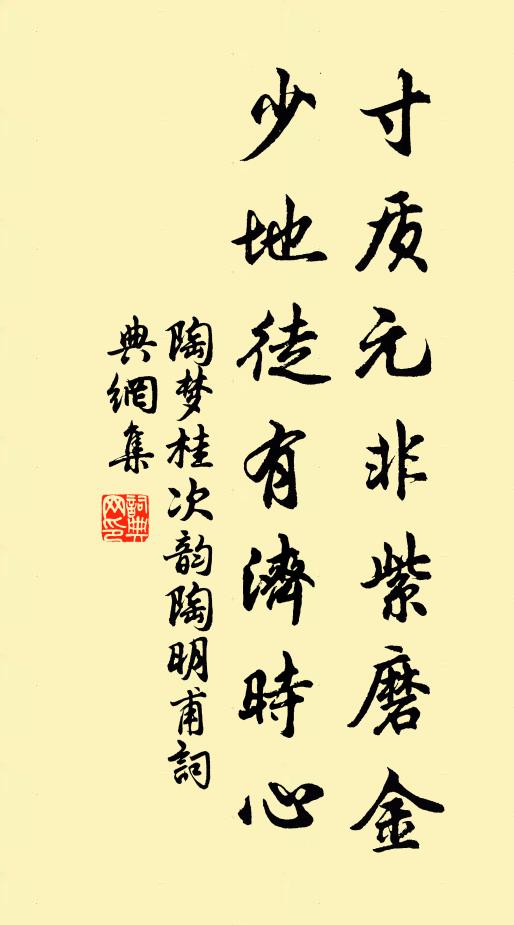 寸质元非紫磨金
少地徒有濟時心
陶梦桂次韵陶明甫詞
典網集
詞典
网印